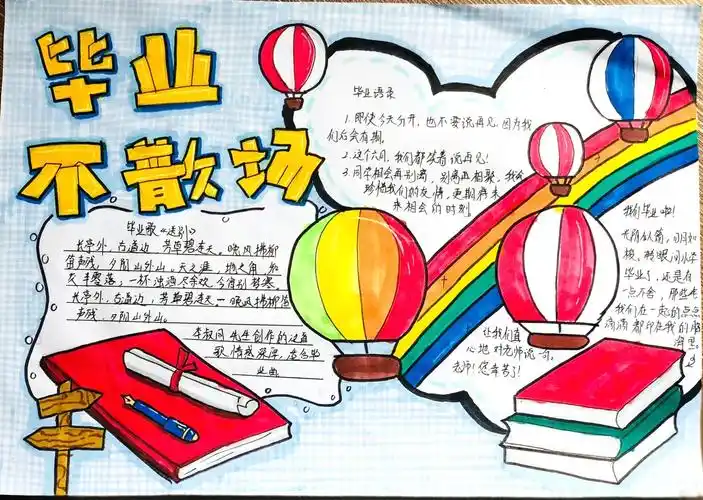 毕业
不散场
毕业语录
1.即使今天分开,也不要说再见,因为我
们后会有期。
2.这个六月,我们都笑着说再见!
3.同学相会再别离,别离再相聚,我
珍惜我们的友情,更期待未
来相会的时刻。
毕业歌《送别》
长亭外,古道边,芳草碧连天。晚风拂柳
笛声残,夕阳山外山。天之涯,地之角,知
交半零落,一杯浊酒尽余欢,今宵别梦寒
长亭外,古道边,芳草碧连天 晚风拂柳笛
声残,夕阳山外山。
李叔同先生创作的这首
歌,情感深厚,
我们毕业啦!
光阴似箭,日月如
梭,转眼间小学
毕业了,还是有
一点不舍,那些
我们在一起的点点
滴滴都印在我的脑
海里。
让我们真
心地对老师说一句,
老师!您辛苦了!